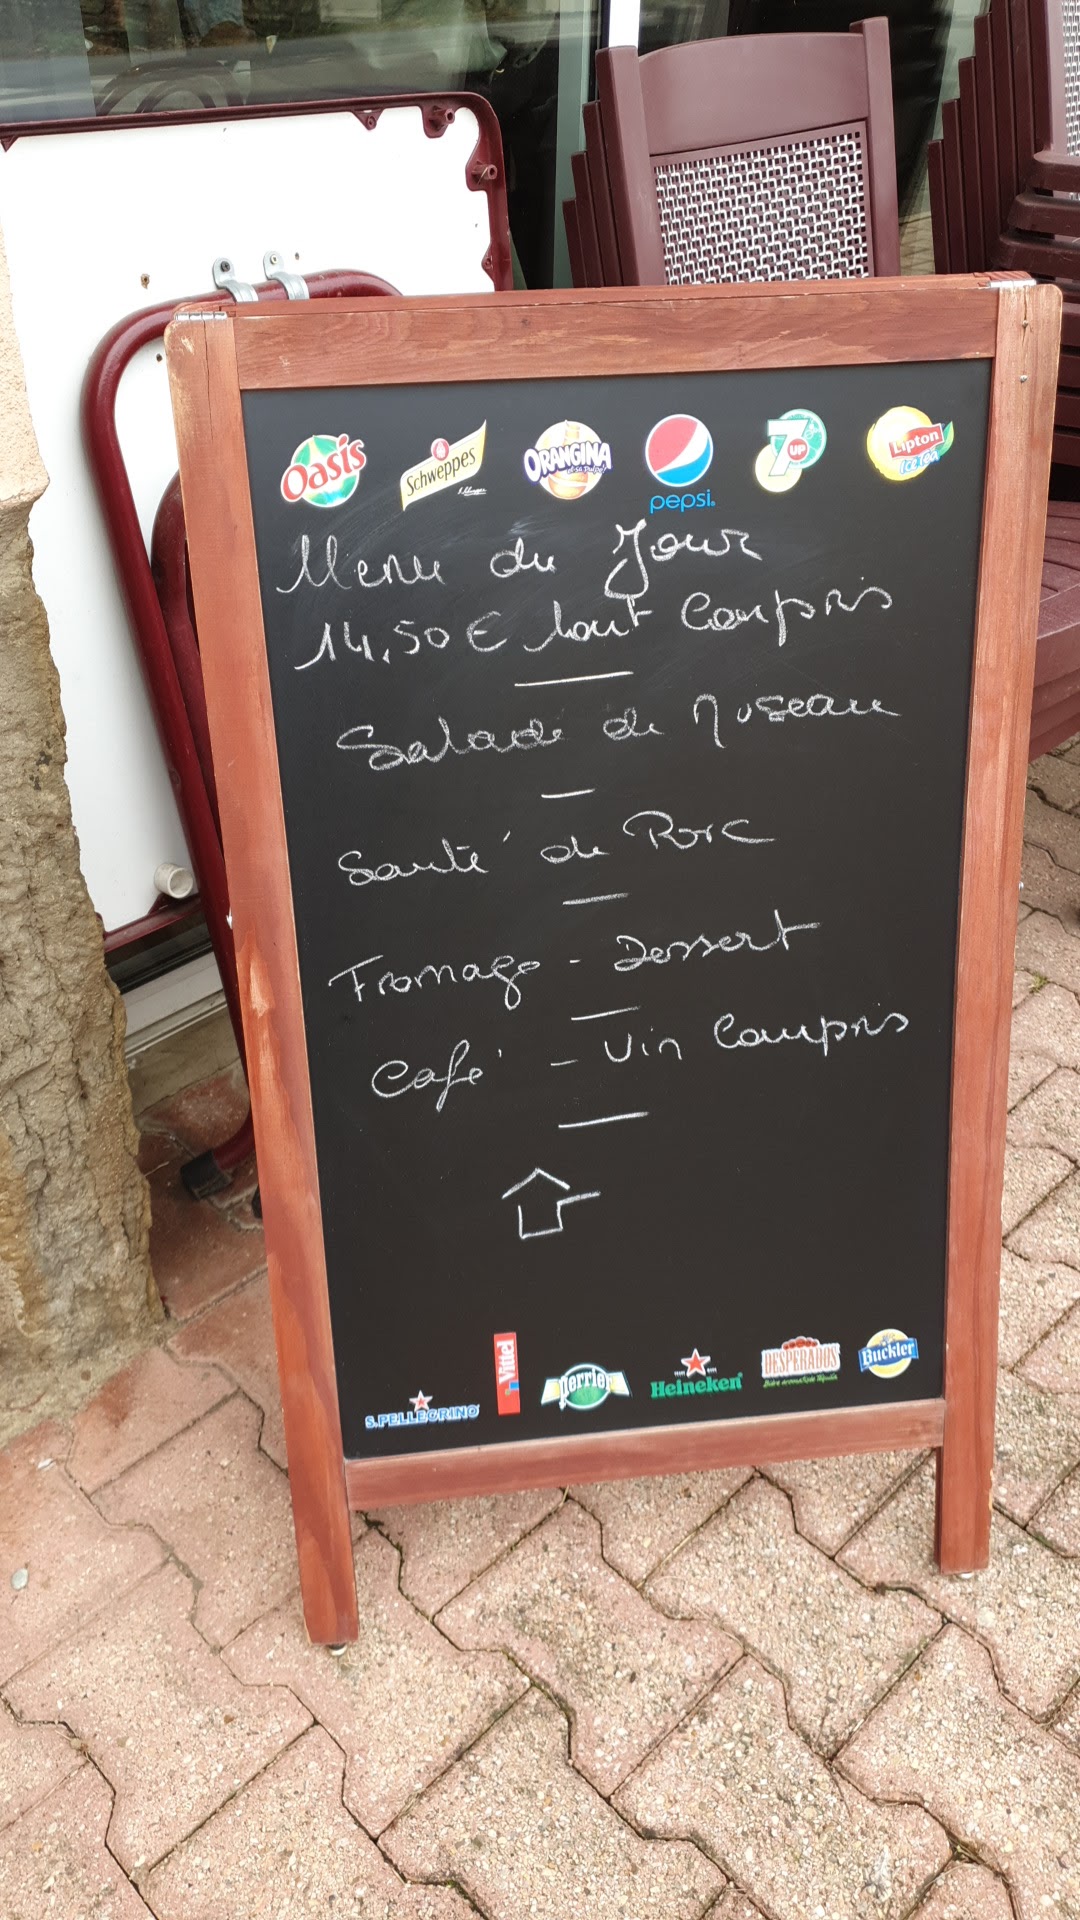 Oasis Schweppes ORANGINA pepsi. 7UP Lipton ICE TEA
Menu du Jour
14,50€ tout Compris
Salade de Museau
Sauté de Porc
Fromage - Dessert
Café - Vin Compris
S.PELLEGRINO Vittel perrier Heineken DESPERADOS Buckler